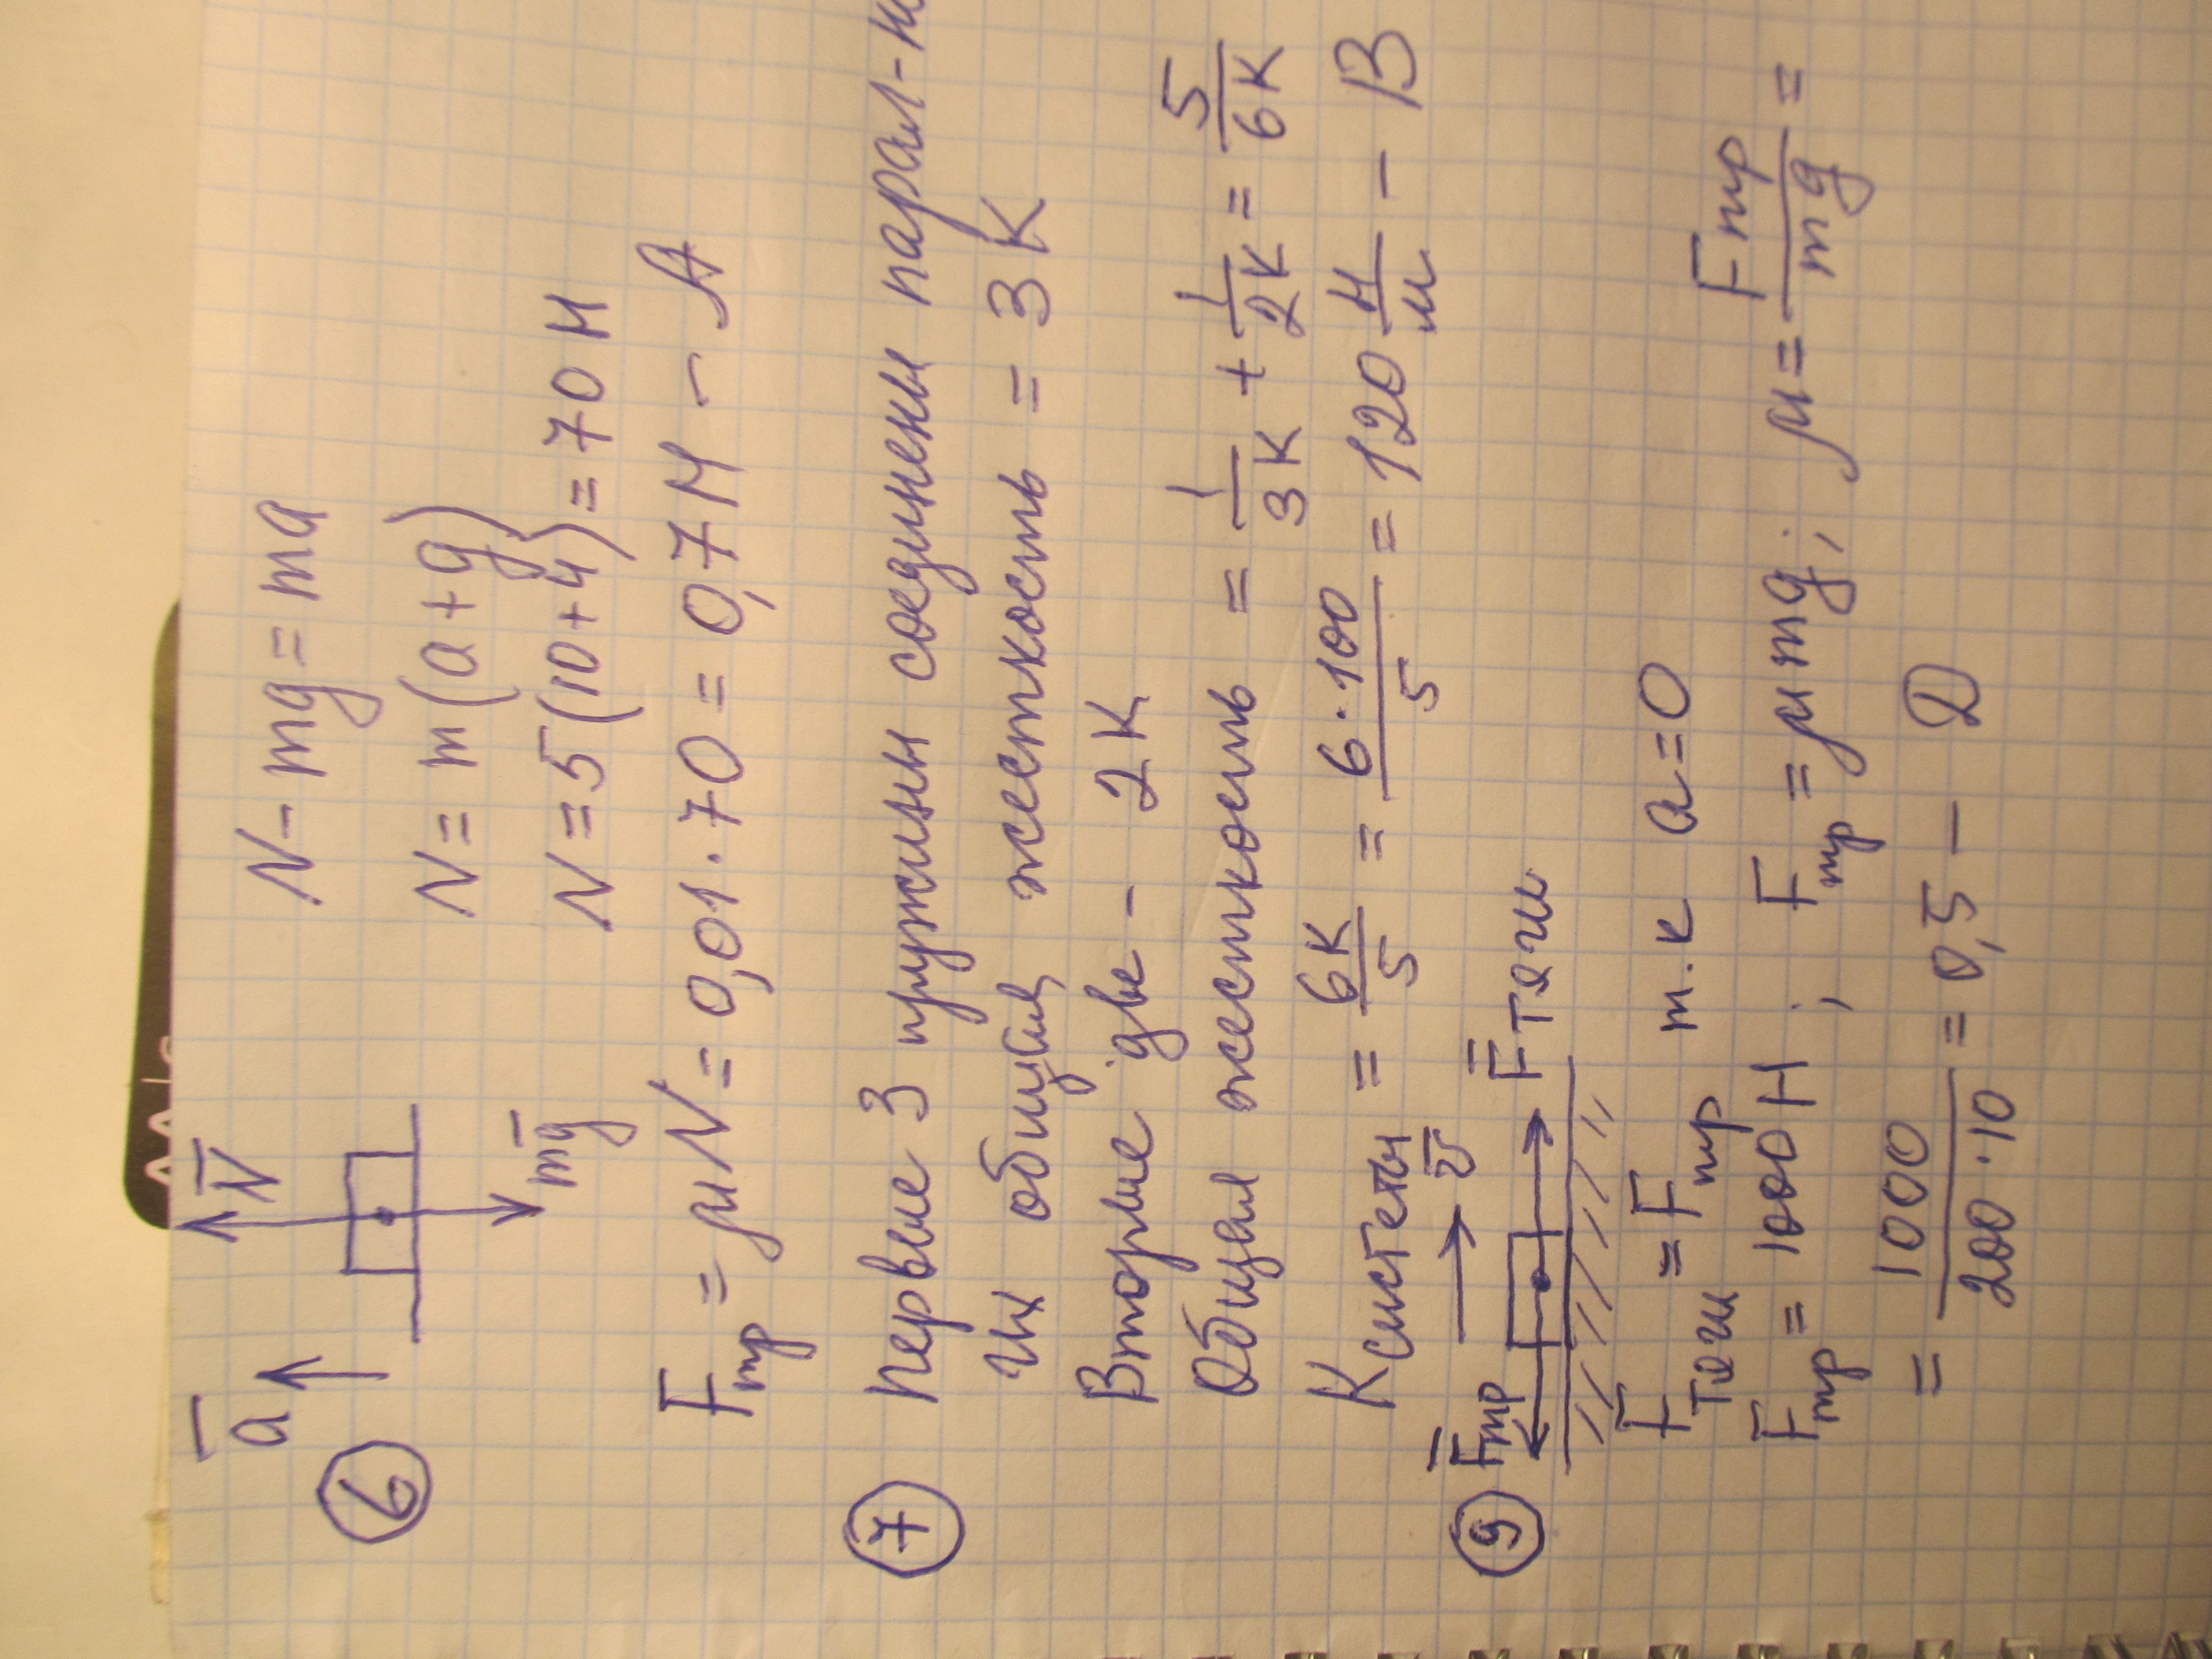 a̅ N̅ N - mg = ma
⑥ N = m(a+g)
mg̅ N = 5(10+4) = 70 Н
Fтр = μN = 0,01 · 70 = 0,7 Н - А
⑦ Первые 3 пружины соединены парал-но
их общая жесткость = 3К
Вторые две - 2К
Общая жесткость = 1/3К + 1/2К = 5/6К
Ксистемы = 6К/5 = 6·100/5 = 120 Н/м - В
⑨ F̅тр v̅ F̅тяги
F̅тяги = F̅тр т.к a=0
F̅тр = 1000 Н ; F̅тр = μmg; μ = Fтр/mg =
= 1000/200·10 = 0,5 - D